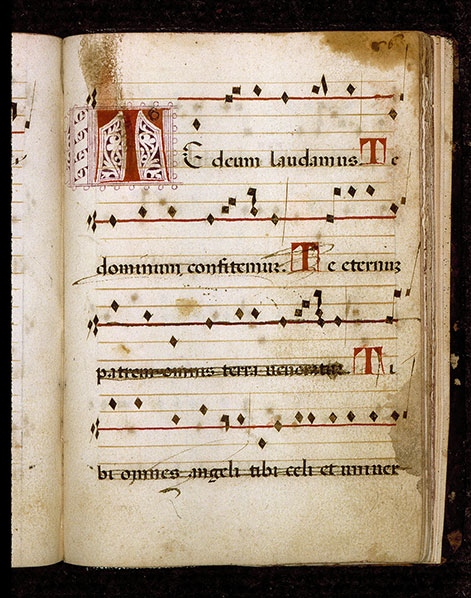 TE deum laudamus. Te
dominum confitemur. Te eternuz
patrem omnis terra ueneratur. Ti
bi omnes angeli tibi celi et uniuer